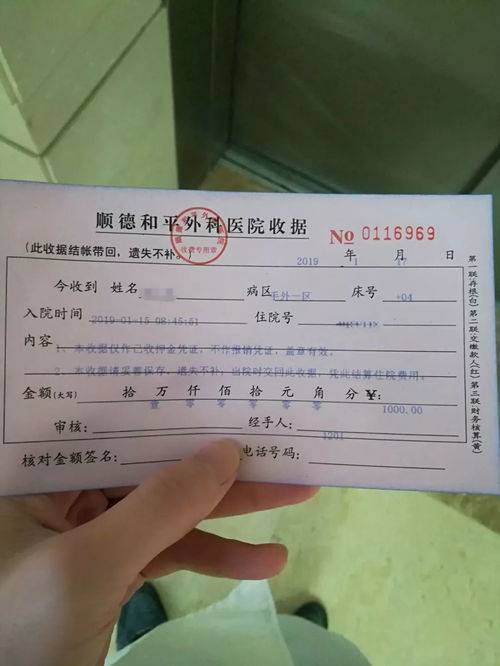 顺德和平外科医院收据
收费专用章
No 0116969
(此收据结帐带回，遗失不补。)
2019 年 1 月 17 日
今收到 姓名 病区 手外一区 床号 +04
入院时间 2019-01-15 08:45:51 住院号
内容 1、本收据仅作已收押金凭证，不作报销凭证，盖章有效。
2、本收据请妥善保存，遗失不补；出院时交回此收据，凭此结算住院费用。
金额(大写) 拾 万 仟 佰 拾 元 角 分 ￥:
壹 零 零 零 零 零 1000.00
审核: 经手人: 1201
核对金额签名: 电话号码:
第一联存根(白) 第二联交缴款人(红) 第三联财务核算(黄)